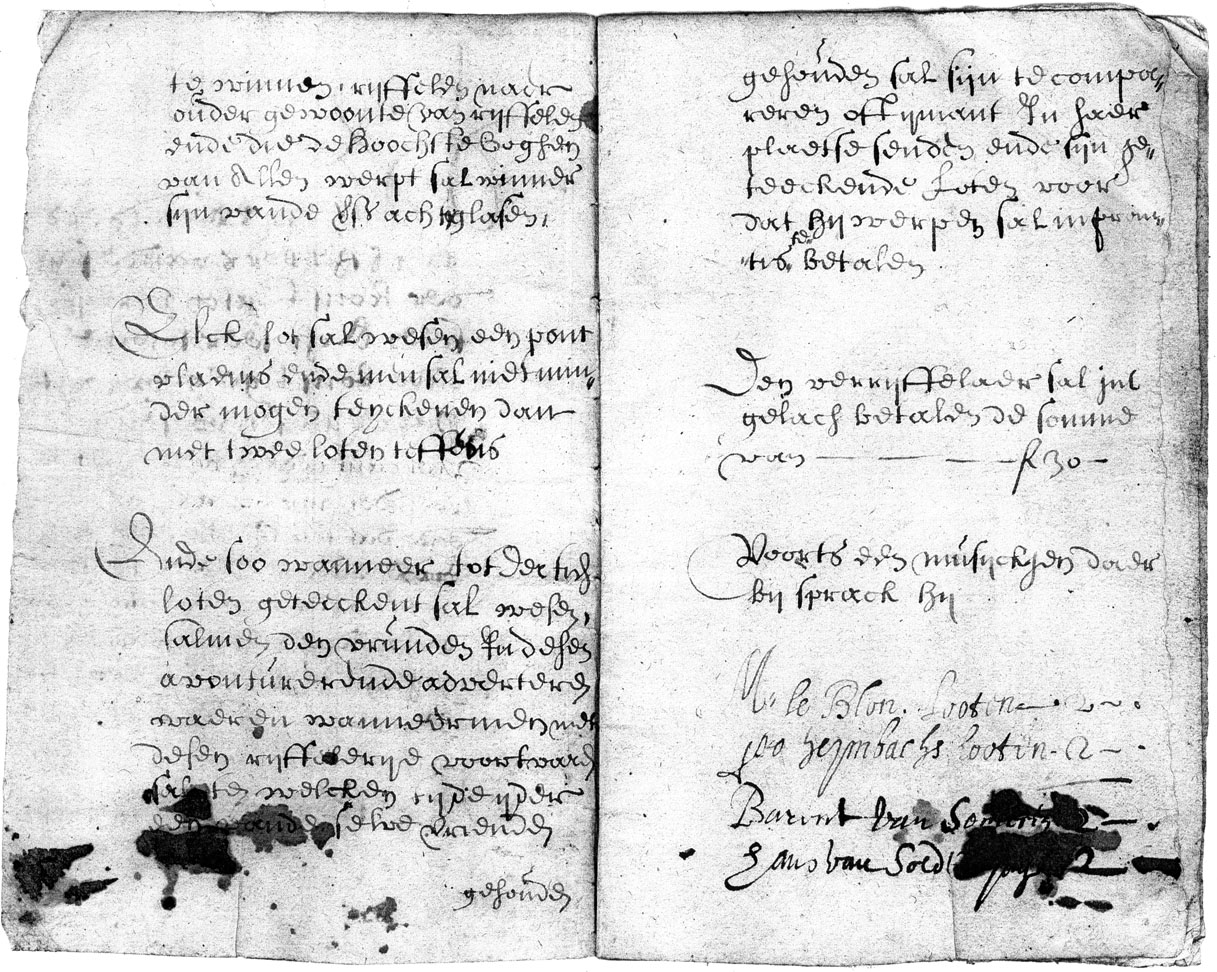 te winnen, rijffelen naer
ouder gewoonte van rijffelen
ende die de hoochste ooghen
van allen werpt sal winner
sijn vande acht glasen,
Elck lot sal wesen een pont
vlaems ende men sal niet min„
der mogen teyckenen dan
met twee loten teffens
Ende soo wanneer tot dertich
loten geteeckent sal wesen,
salmen den vrunden In desen
avontuerende adverteren
waer en wanneer men met
desen rijffelerije voortvaren
sal ten welcken tijde ijder
een vande selve vrienden
gehouden
gehouden sal sijn te compa„
reren oft ijmant In haer
plaetse senden ende sijn ge„
teeckende loten voor
dat hij werpen sal in prom„
tis te betalen
Den verrijffelaer sal int
gelach betalen de somme
van — — — — f 30 —
Voorts een musijckgen daer
bij sprack hij
Mr le Blon. Looten — 2 — .
Joo heijmbachs looten - 2 — .
Barent van Someren 2 — .
Hans van Soldt 2 —